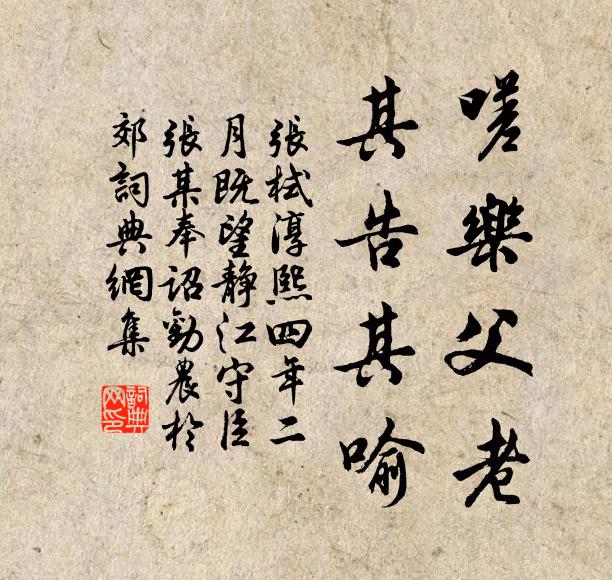 嗟樂父老
其告其喻
張栻淳熙四年二
月既望靜江守臣
張某奉詔勸農於
郊詞典網集
詞典
网印